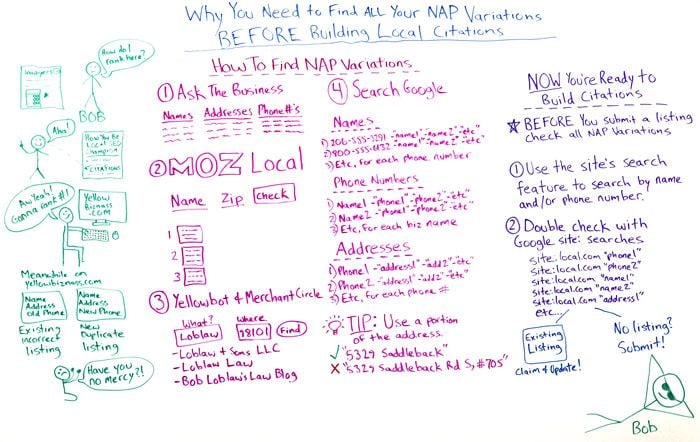 Why You Need to Find ALL Your NAP Variations
BEFORE Building Local Citations
How do I
rank here?
BOB
Aha!
How You Be
Local SEO
Champion
Citations
Aw Yeah!
Gonna rank #1!
Yellow
Bizness
.COM
Meanwhile on
yellowbizness.com
Name
Address
Old Phone
Name
Address
New Phone
Existing
incorrect
listing
New
Duplicate
listing
Have you
no mercy?!
How To Find NAP Variations
① Ask The Business
Names Addresses Phone #'s
② MOZ Local
Name Zip check
1
2
3
③ Yellowbot & MerchantCircle
What? Where
Loblaw 98101 Find
- Loblaw & Sons LLC
- Loblaw Law
- Bob Loblaw's Law Blog
④ Search Google
Names
1) 206-555-3291 -"name1" -"name2" -"etc"
2) 800-555-6132 -"name1" -"name2" -"etc"
3) Etc, for each phone number
Phone Numbers
1) Name1 -"phone1" -"phone2" -"etc"
2) Name2 -"phone1" -"phone2" -"etc"
3) Etc, for each biz name
Addresses
1) Phone1 -"address1" -"add2" -"etc"
2) Phone2 -"address1" -"add2" -"etc"
3) Etc, for each phone #
TIP: Use a portion
of the address.
✓ "5329 Saddleback"
✗ "5329 Saddleback Rd S, #705"
NOW You're Ready to
Build Citations
★ BEFORE You submit a listing
check all NAP Variations
① Use the site's search
feature to search by name
and/or phone number.
② Double check with
Google site: searches
site:local.com "phone1"
site:local.com "phone2"
site:local.com "name1"
site:local.com "name2"
site:local.com "address1"
etc...
Existing
Listing
Claim & Update!
No listing?
Submit!
Bob